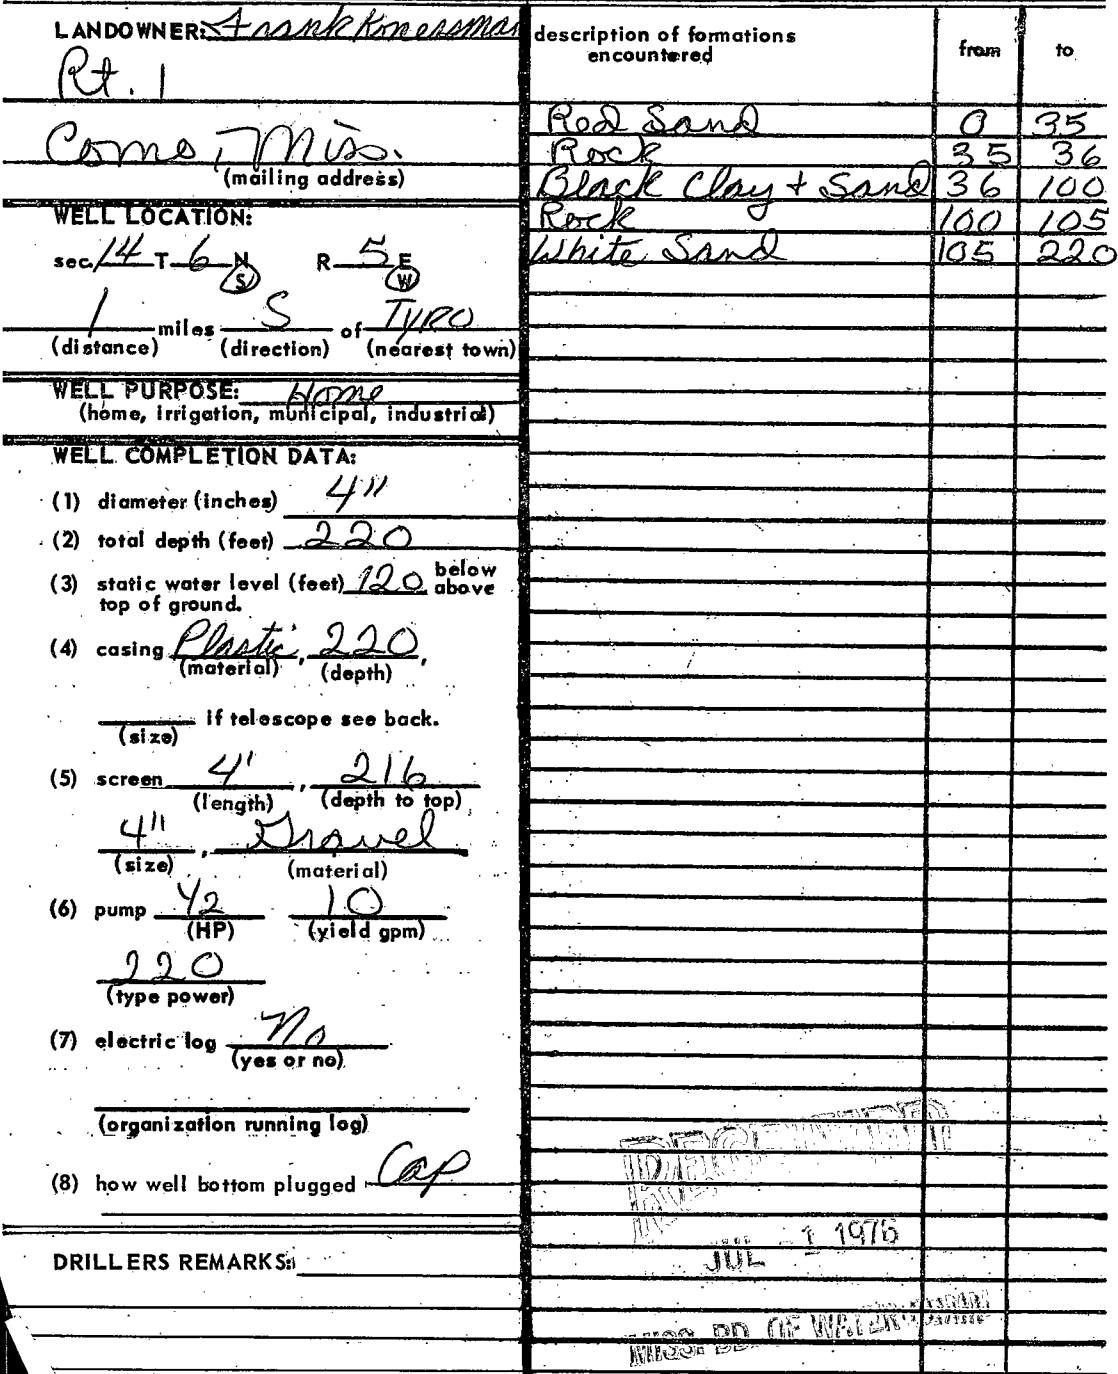 LANDOWNER: Frank
Rt. 1
Como, Miss.
(mailing address)
WELL LOCATION:
sec. 14 T 6 N R 5 E
S W
1 miles S of TYRO
(distance) (direction) (nearest town)
WELL PURPOSE: Home
(home, irrigation, municipal, industrial)
WELL COMPLETION DATA:
(1) diameter (inches) 4"
(2) total depth (feet) 220
(3) static water level (feet) 120 below
above
top of ground.
(4) casing Plastic, 220,
(material) (depth)
if telescope see back.
(size)
(5) screen 4', 216
(length) (depth to top)
4", Gravel
(size) (material)
(6) pump 1/2 10
(HP) (yield gpm)
220
(type power)
(7) electric log No
(yes or no)
(organization running log)
(8) how well bottom plugged Cap
DRILLERS REMARKS:
description of formations
encountered
from to
Red Sand 0 35
Rock 35 36
Black Clay + Sand 36 100
Rock 100 105
White Sand 105 220
RECEIVED
JUL - 1 1976
MISS. BD. OF WATER COMM